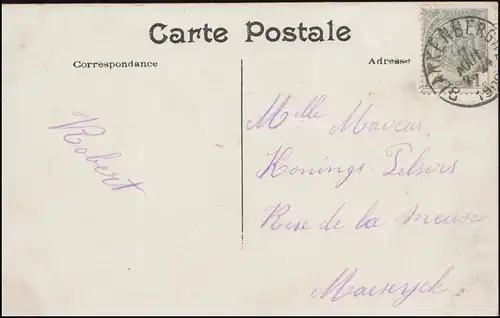 Carte Postale
Correspondance
Adresse
BLANKENBERGHE
AOUT
Robert
Mlle Maveur
Konings-Telsers
Rue de la Meuse
Maeseyck.